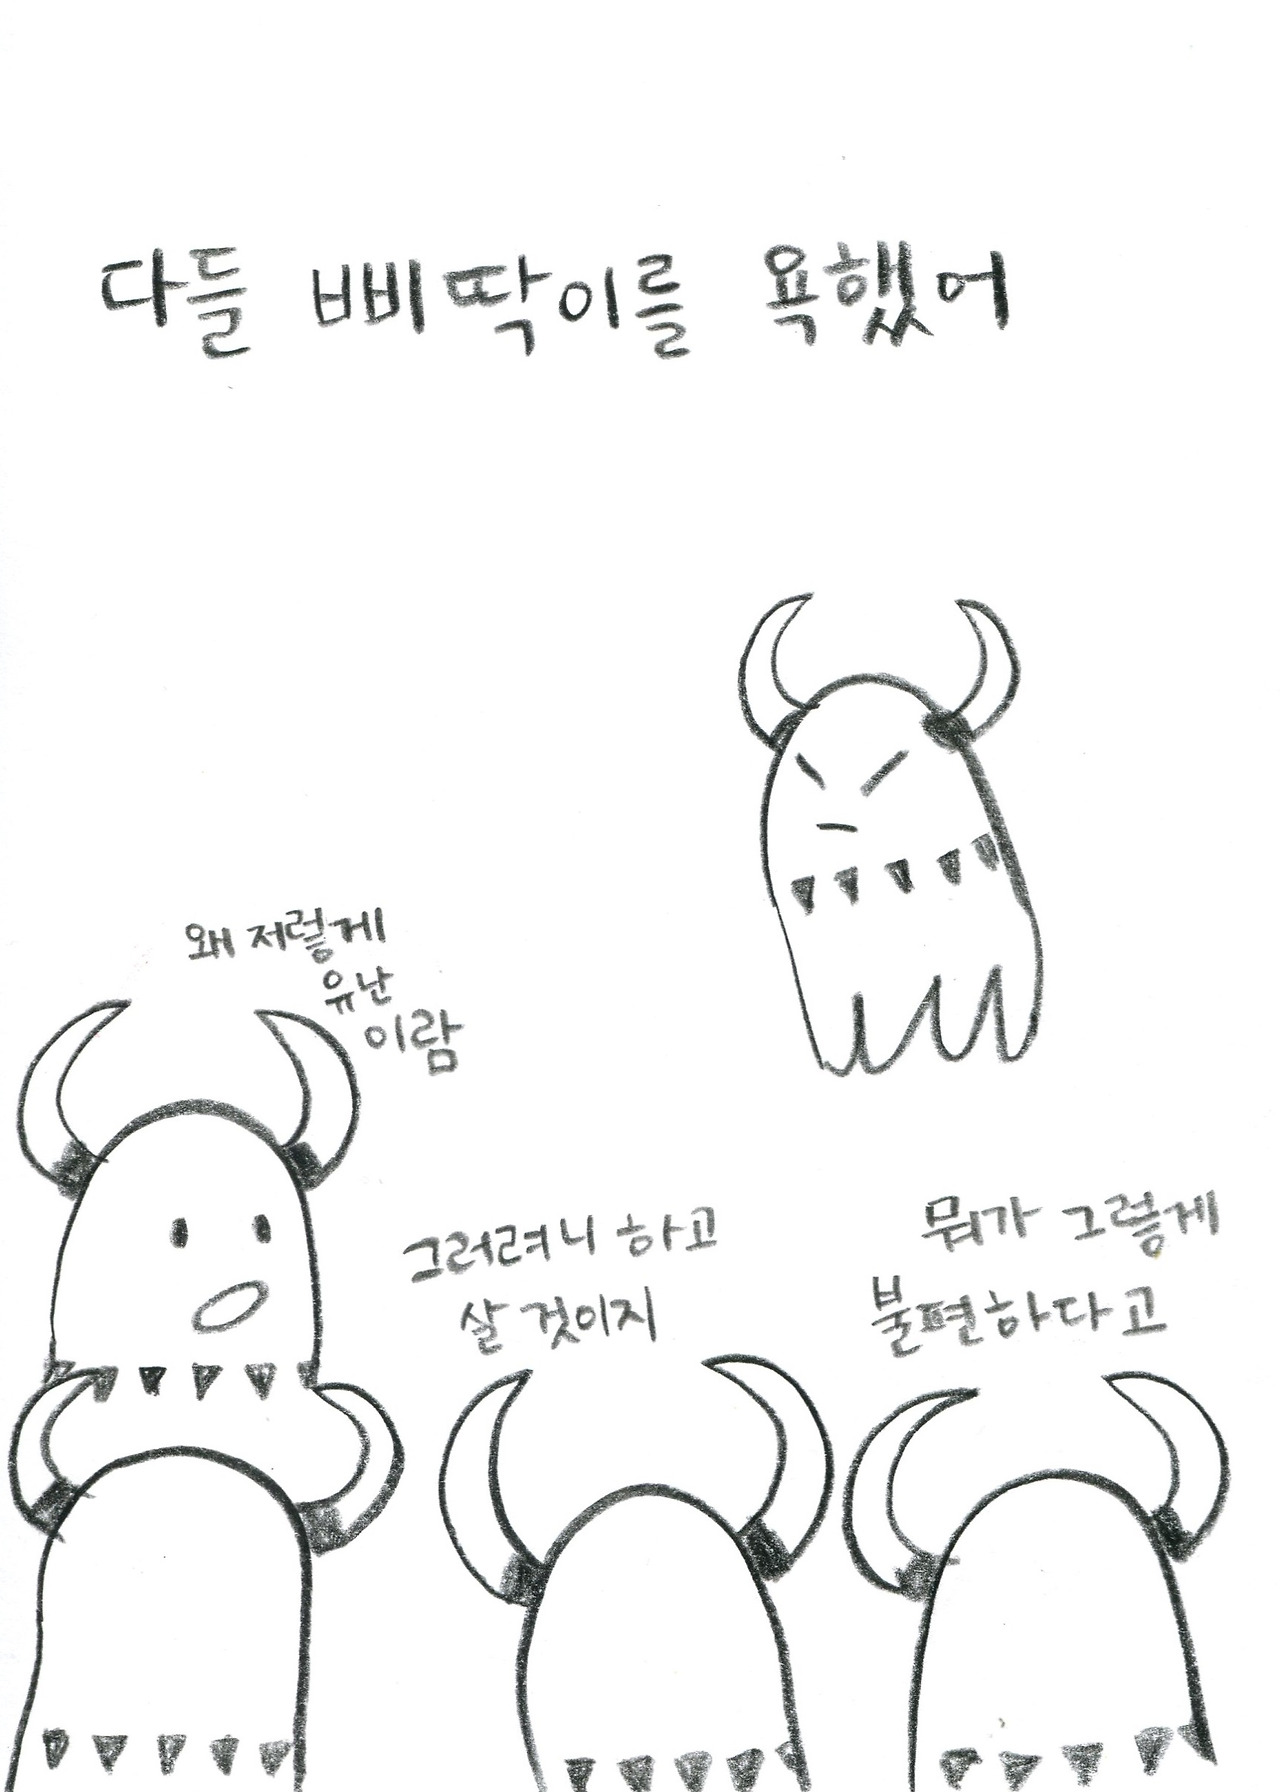 다들 삐딱이를 욕했어
왜 저렇게
유난
이람
그러려니 하고
살 것이지
뭐가 그렇게
불편하다고